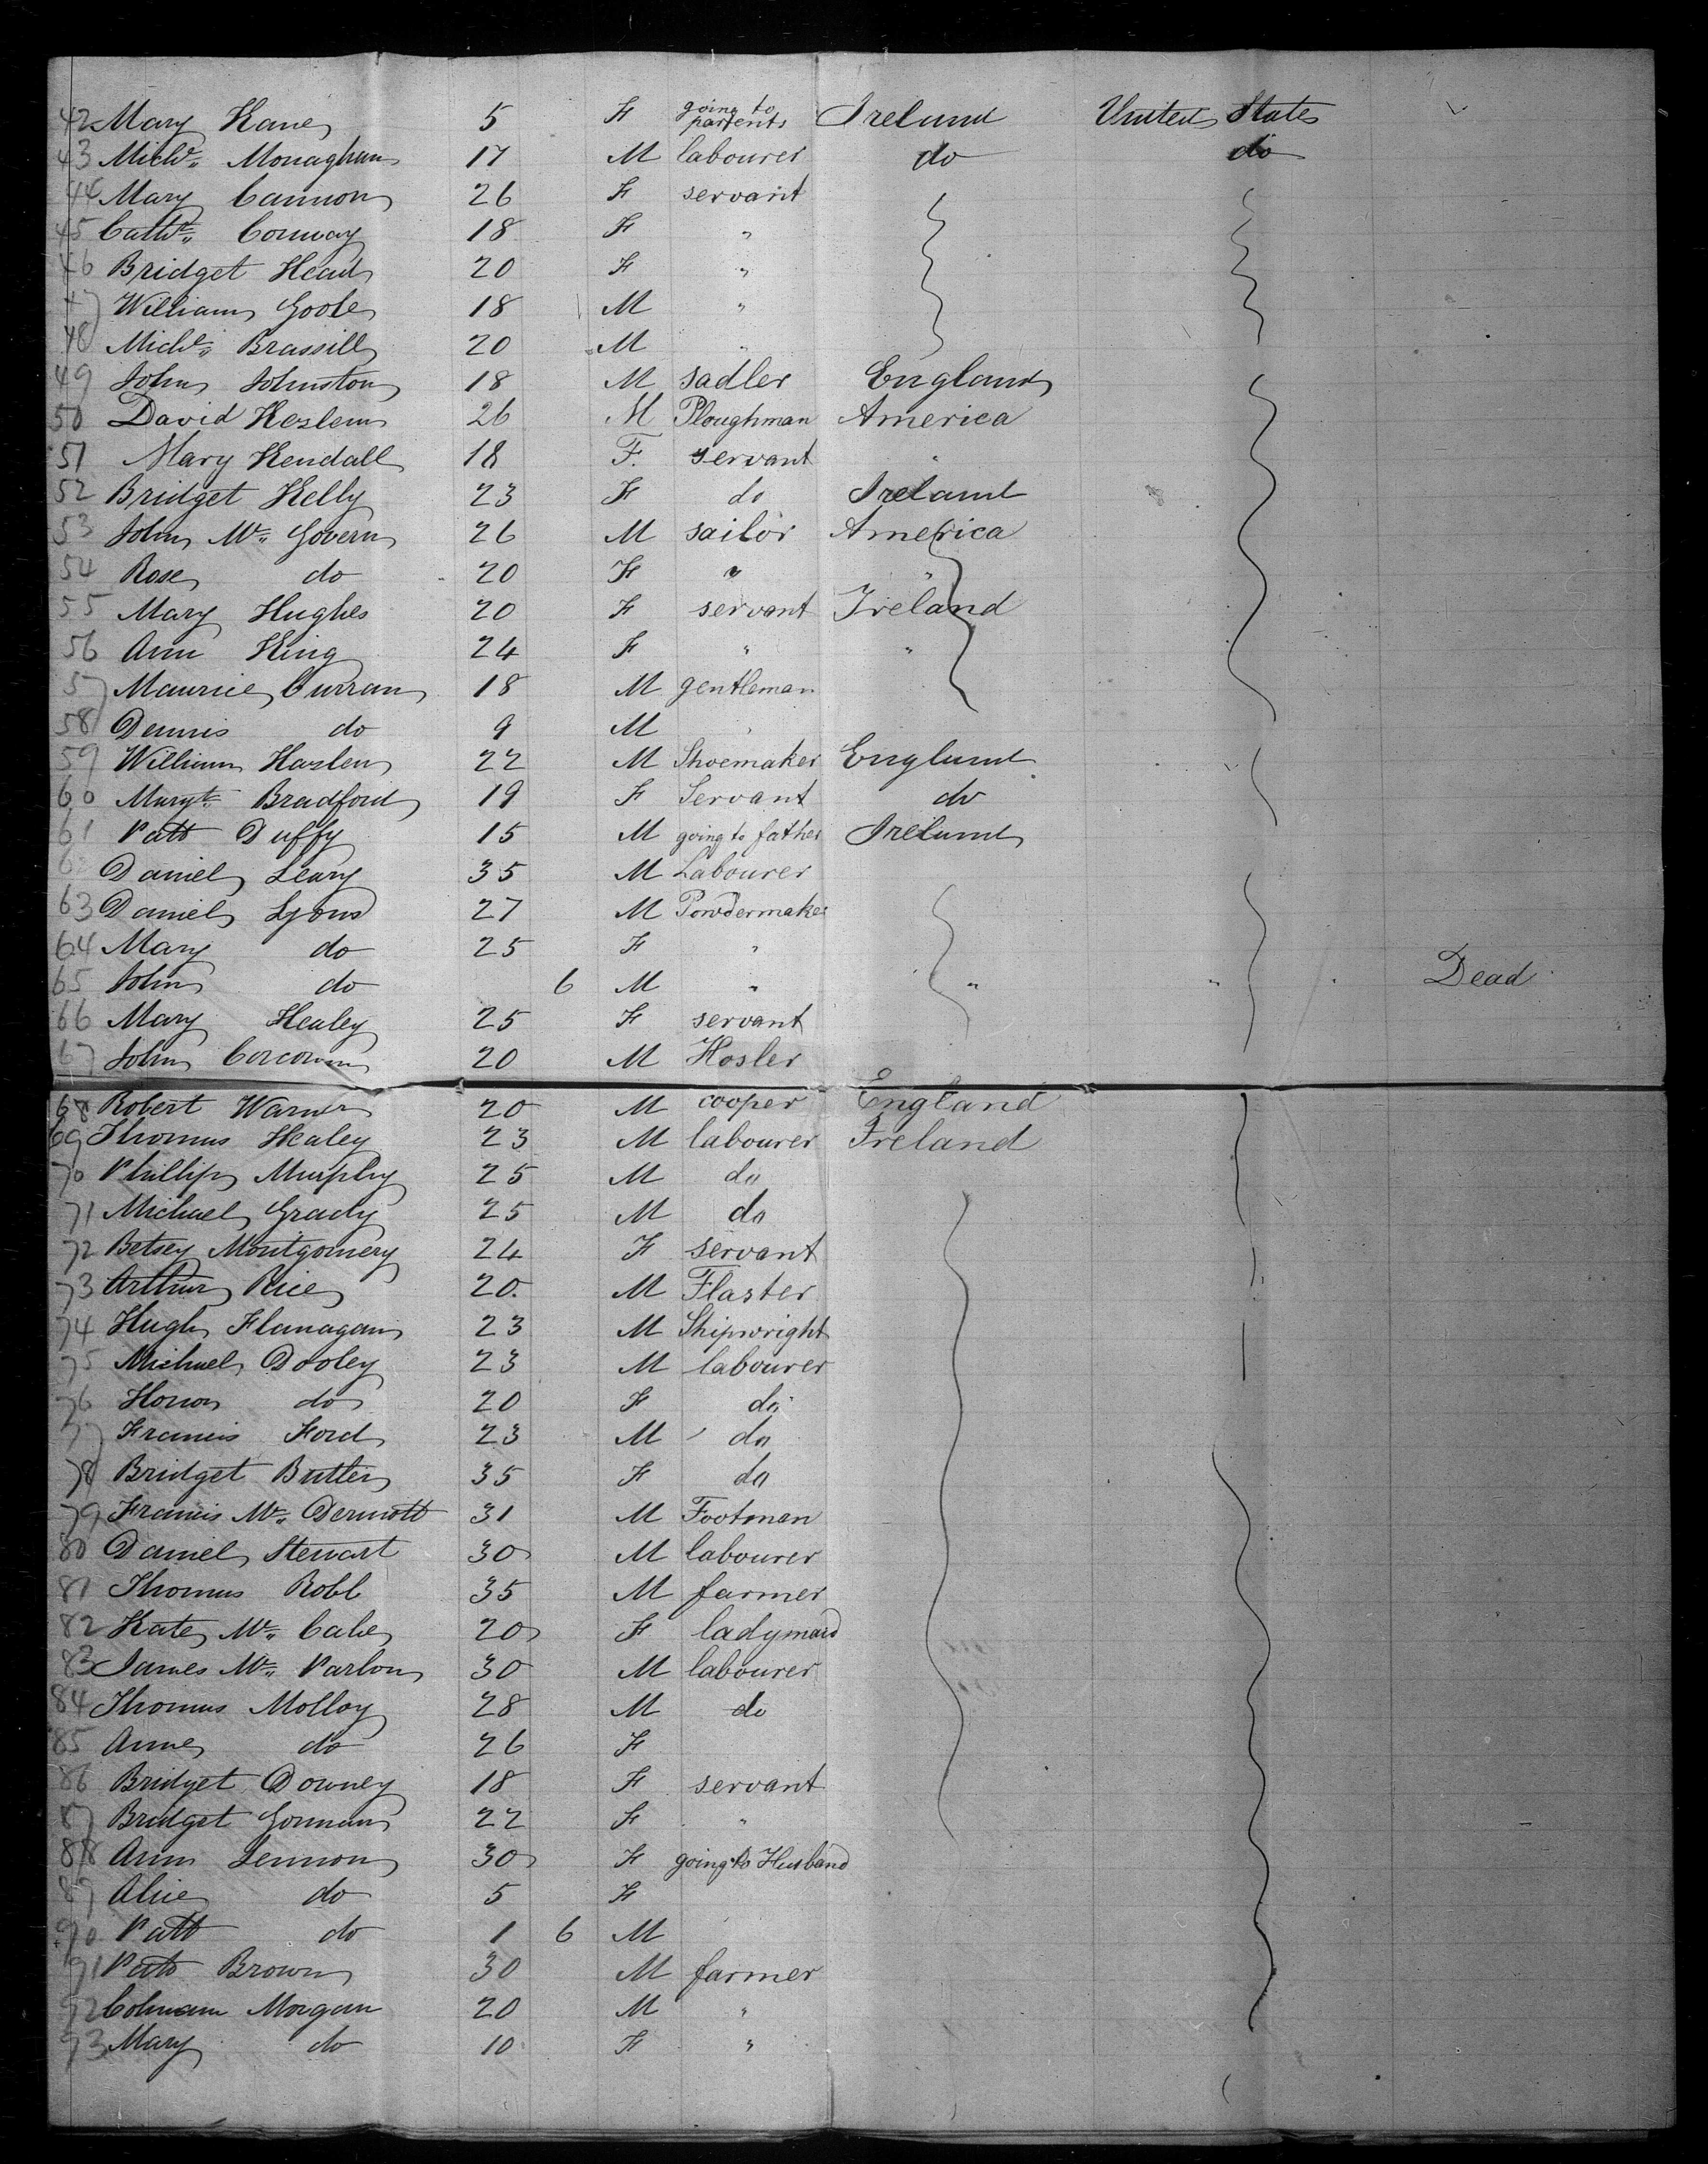 42 Mary Kane 5 F going to parents Ireland United States
43 Michl. Monaghan 17 M labourer do do
44 Mary Cannon 26 F servant
45 Cathe. Conway 18 F "
46 Bridget Head 20 F "
47 William Goole 18 M "
48 Michl. Brassill 20 M "
49 John Johnston 18 M sadler England
50 David Heslem 26 M Ploughman America
51 Mary Kendall 18 F. servant "
52 Bridget Kelly 23 F do Ireland
53 John Mc. Govern 26 M sailor America
54 Rose do 20 F " "
55 Mary Hughes 20 F servant Ireland
56 Ann King 24 F " "
57 Maurice Curran 18 M gentleman
58 Dennis do 9 M "
59 William Haslem 22 M Shoemaker England
60 Margt. Bradford 19 F Servant do
61 Patt Duffy 15 M going to father Ireland
6 Daniel Leary 35 M Labourer
63 Daniel Lyons 27 M Powdermaker
64 Mary do 25 F "
65 John do 6 M " " " " Dead
66 Mary Healey 25 F servant
67 John Corcoran 20 M Hosler
68 Robert Warner 20 M cooper England
69 Thomas Healey 23 M labourer Ireland
70 Phillip Murphy 25 M do
71 Michael Grady 25 M do
72 Betsey Montgomery 24 F servant
73 Arthur Rice 20. M Flaster
74 Hugh Flanagan 23 M Shipwright
75 Michael Dooley 23 M labourer
76 Honor do 20 F do
77 Francis Ford 23 M do
78 Bridget Butler 35 F do
79 Francis Mc. Dermott 31 M Footman
80 Daniel Stewart 30 M labourer
81 Thomas Robb 35 M farmer
82 Kate Mc. Cabe 20 F ladymaid
83 James Mc. Parlon 30 M labourer
84 Thomas Molloy 28 M do
85 Anne do 26 F
86 Bridget Downey 18 F servant
87 Bridget Gorman 22 F "
88 Ann Lennon 30 F going to Husband
89 Alice do 5 F
90 Patt do 1 6 M
91 Patt Brown 30 M farmer
92 Colmam Morgan 20 M "
93 Mary do 10 F "